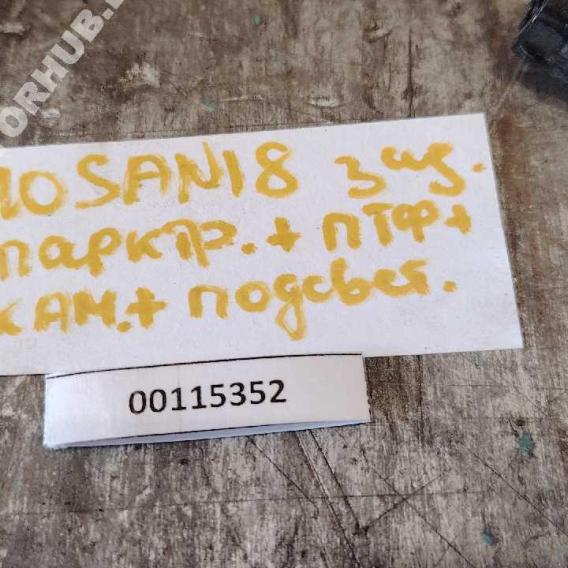 ORHUB.
10SAN18 зад.
парктр.+ ПТФ+
КАМ.+ подсвет.
00115352